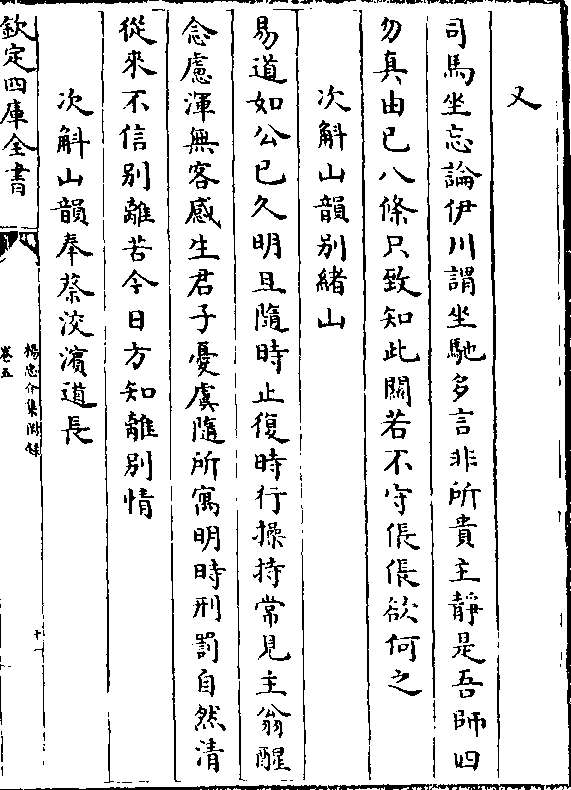 又
司馬坐忘論伊川謂坐馳多言非所貴主靜是吾師四
勿真由已八條只致知此關若不守倀倀欲何之
次斛山韻别緒山
易道如公已久明且隨時止復時行操持常見主翁醒
念慮渾無客感生君子憂虞隨所寓明時刑罰自然清
從來不信别離苦今日方知離别情
次斛山韻奉蔡洨濱道長
欽定四庫全書
楊忠介集附録
卷五
十一